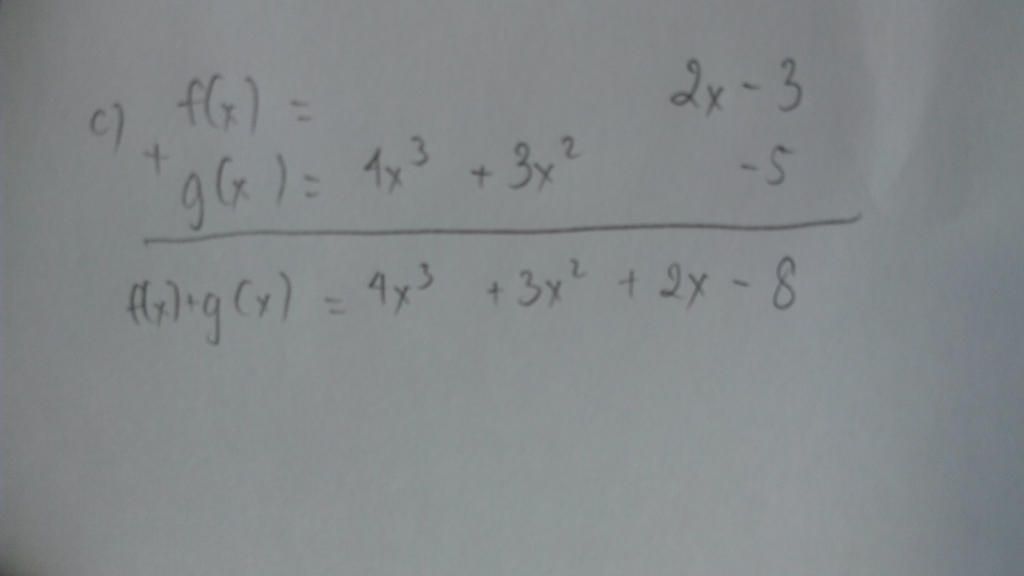 c) f(x) = 2x - 3
+ g(x) = 4x³ + 3x² - 5
f(x)+g(x) = 4x³ + 3x² + 2x - 8